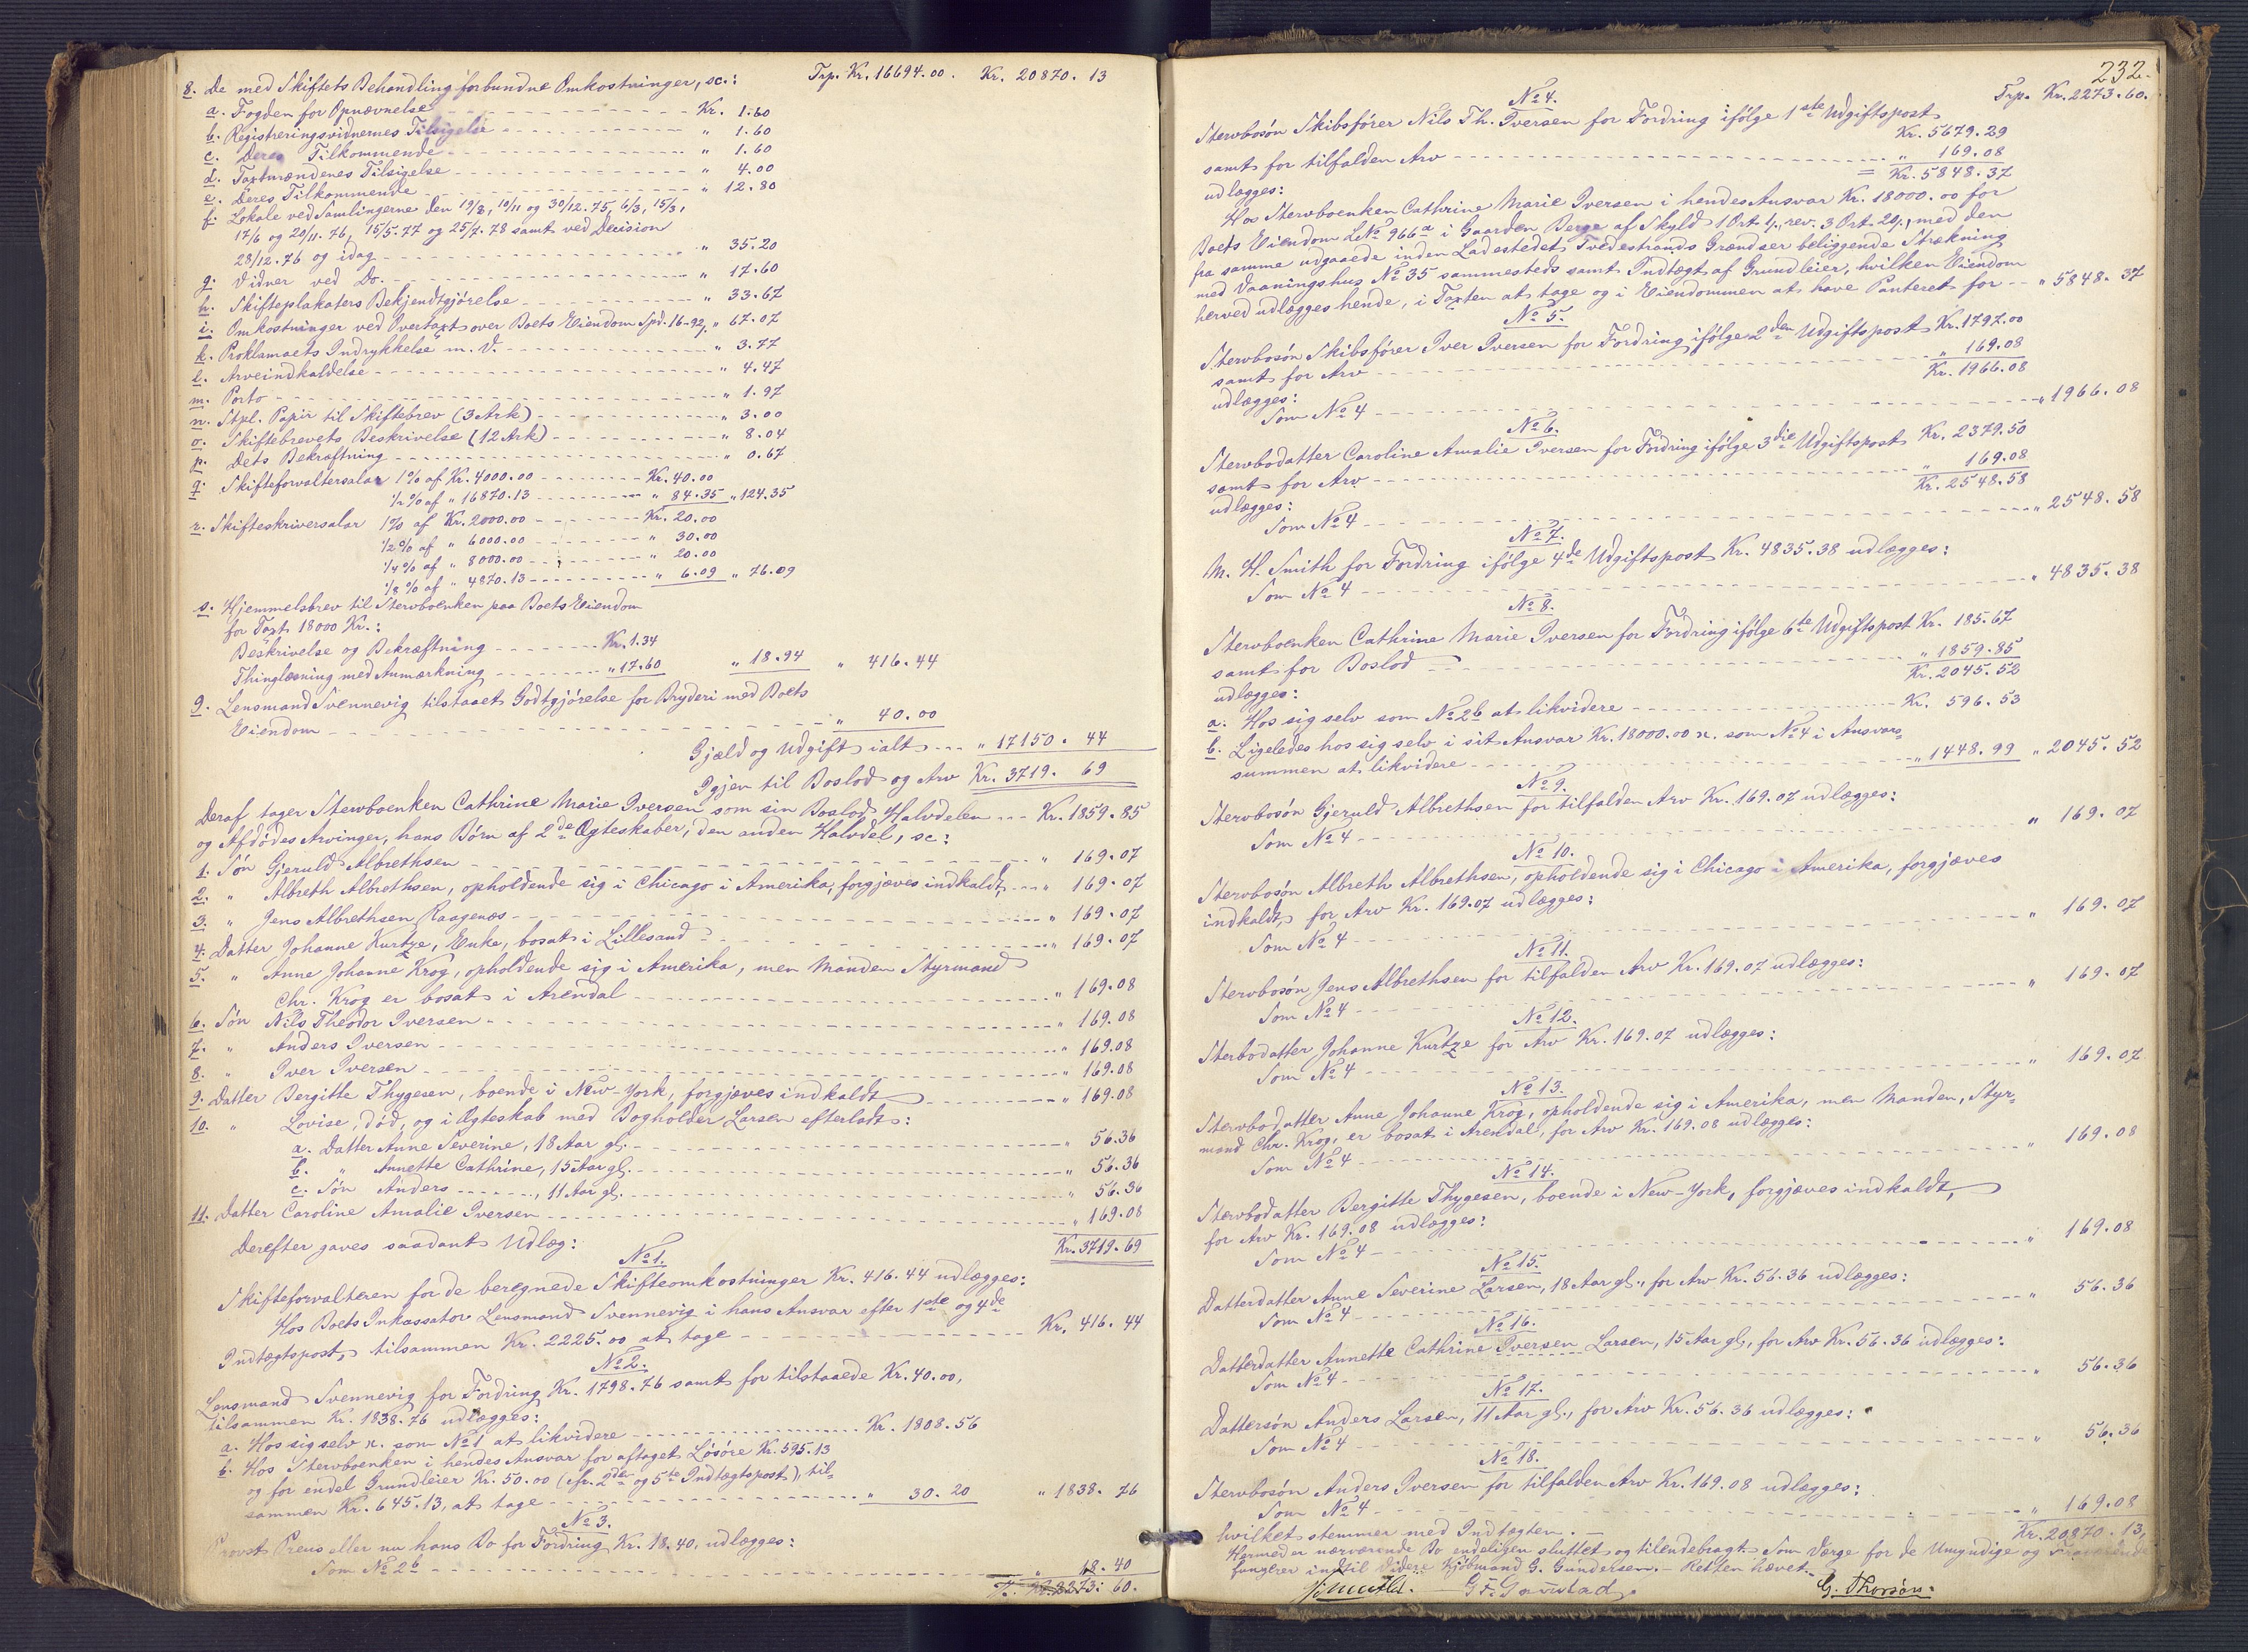 Trp. Kr. 16694.00. Kr. 20870.13
8. De med Skiftets Behandling forbundne Omkostninger, sc.:
a. Fogden for Opnævnelse Kr. 1.60
b. Registreringsvidnernes Tilsigelse " 1.60
c. Deres Tilkommende " 1.60
d. Taxtmændenes Tilsigelse " 4.00
e. Deres Tilkommende " 12.80
f. Lokale ved Samlingerne den 19/8, 10/11 og 30/12.75, 6/3, 15/3,
17/6 og 20/11.76, 15/5.77 og 25/7.78 samt ved Decision
28/12.76 og idag " 35.20
g. Vidner ved Do. " 17.60
h. Skifteplakaters Bekjendtgjørelse " 33.67
i. Omkostninger ved Overtaxt over Boets Eiendom Spd. 16-92/. " 67.07
k. Proklamaets Indrykkelse m. V. " 3.77
l. Arveindkaldelse " 4.47
m. Porto " 1.97
n. Stpl. Papir til Skiftebrev (3 Ark) " 3.00
o. Skiftebrevets Beskrivelse (12 Ark) " 8.04
p. Dets Bekræftning " 0.67
q. Skifteforvaltersalar 1% af Kr. 4000.00 Kr. 40.00
1/2% af " 16870.13 " 84.35 " 124.35
r. Skifteskriversalar 1% af Kr. 2000.00 Kr. 20.00
1/2% af " 6000.00 " 30.00
1/4% af " 8000.00 " 20.00
1/8% af " 4870.13 " 6.09 " 76.09
s. Hjemmelsbrev til Stervboenken paa Boets Eiendom
for Taxt 18000 Kr.:
Beskrivelse og Bekræftning Kr. 1.34
Thinglæsning med Anmærkning " 17.60 " 18.94 " 416.44
9. Lensmand Svennevig tilstaaet Godtgjørelse for Bryderi med Boets
Eiendom " 40.00
Gjæld og Udgift ialt " 17150.44
Igjen til Boslod og Arv Kr. 3719.69
Deraf tager Stervboenken Cathrine Marie Iversen som sin Boslod Halvdelen Kr. 1859.85
og Afdødes Arvinger, hans Børn af 2de Ægteskaber, den anden Halvdel, sc:
1. Søn Gjeruld Albrethsen " 169.07
2. " Albreth Albrethsen, opholdende sig i Chicago i Amerika, forgjæves indkaldt " 169.07
3. " Jens Albrethsen Raagenæs " 169.07
4. Datter Johanne Kurtze, Enke, bosat i Lillesand " 169.07
5. " Anne Johanne Krog, opholdende sig i Amerika, men Manden Styrmand
Chr. Krog er bosat i Arendal " 169.08
6. Søn Nils Theodor Iversen " 169.08
7. " Anders Iversen " 169.08
8. " Iver Iversen " 169.08
9. Datter Bergitte Thygesen, boende i New-York, forgjæves indkaldt " 169.08
10. " Lovise, død, og i Ægteskab med Bogholder Larsen efterladt:
a. Datter Anne Severine, 18 Aar gl. " 56.36
b. " Annette Cathrine, 15 Aar gl. " 56.36
c. Søn Anders, 11 Aar gl. " 56.36
11. Datter Caroline Amalie Iversen " 169.08
Kr. 3719.69
Derefter gaves saadant Udlæg:
No 1.
Skifteforvalteren for de beregnede Skifteomkostninger Kr. 416.44 udlægges:
Hos Boets Inkassator Lensmand Svennevig i hans Ansvar efter 1ste og 4de
Indtægtspost, tilsammen Kr. 2225.00 at tage Kr. 416.44
No 2.
Lensmand Svennevig for Fordring Kr. 1798.76 samt for tilstaaede Kr. 40.00,
tilsammen Kr. 1838.76 udlægges:
a. Hos sig selv x. som No 1 at likvidere Kr. 1808.56
b. Hos Stervboenken i hendes Ansvar for aftaget Løsøre Kr. 595.13
og for endel Grundleier Kr. 50.00 (cfr. 2den og 5te Indtægtspost), til-
sammen Kr. 645.13, at tage " 30.20 " 1838.76
No 3.
Provst Preus eller nu hans Bo for Fordring Kr. 18.40, udlægges:
Som No 2b " 18.40
Tr. Kr. 2273.60.
232.
Trp. Kr. 2273.60.
No 4.
Stervbosøn Skibsfører Nils Th. Iversen for Fordring ifølge 1ste Udgiftspost
Kr. 5679.29
samt for tilfalden Arv " 169.08
udlægges: = Kr. 5848.37
Hos Stervboenken Cathrine Marie Iversen i hendes Ansvar Kr. 18000.00 for
Boets Eiendom LNo 966a i Gaarden Berge af Skyld 1 Ort 1/., rev. 3 Ort 20/., med den
fra samme udgaaede inden Ladestedet Tvedestrands Grændser beliggende Strækning
med Vaaningshus No 35 sammesteds samt Indtægt af Grundleier, hvilken Eiendom
herved udlægges hende, i Taxten at tage og i Eiendommen at have Panteret for " 5848.37
No 5.
Stervbosøn Skibsfører Iver Iversen for Fordring ifølge 2den Udgiftspost Kr. 1797.00
samt for Arv " 169.08
udlægges: Kr. 1966.08
Som No 4 " 1966.08
No 6.
Stervbodatter Caroline Amalie Iversen for Fordring ifølge 3die Udgiftspost Kr. 2379.50
samt for Arv " 169.08
udlægges: Kr. 2548.58
Som No 4 " 2548.58
No 7.
M. H. Smith for Fordring ifølge 4de Udgiftspost Kr. 4835.38 udlægges:
Som No 4 " 4835.38
No 8.
Stervboenken Cathrine Marie Iversen for Fordring ifølge 6te Udgiftspost Kr. 185.67
samt for Boslod " 1859.85
udlægges: Kr. 2045.52
a. Hos sig selv som No 2b at likvidere Kr. 596.53
b. Ligeledes hos sig selv i sit Ansvar Kr. 18000.00 x. som No 4 i Ansvars-
summen at likvidere " 1448.99 " 2045.52
No 9.
Stervbosøn Gjeruld Albrethsen for tilfalden Arv Kr. 169.07 udlægges:
Som No 4 " 169.07
No 10.
Stervbosøn Albreth Albrethsen, opholdende sig i Chicago i Amerika, forgjæves
indkaldt, for Arv Kr. 169.07 udlægges:
Som No 4 " 169.07
No 11.
Stervbosøn Jens Albrethsen for tilfalden Arv Kr. 169.07 udlægges:
Som No 4 " 169.07
No 12.
Sterbodatter Johanne Kurtze for Arv Kr. 169.07 udlægges:
Som No 4 " 169.07
No 13.
Stervbodatter Anne Johanne Krog, opholdende sig i Amerika, men Manden, Styr-
mand Chr. Krog, er bosat i Arendal, for Arv Kr. 169.08 udlægges:
Som No 4 " 169.08
No 14.
Stervbodatter Bergitte Thygesen, boende i New-York, forgjæves indkaldt,
for Arv Kr. 169.08 udlægges:
Som No 4 " 169.08
No 15.
Datterdatter Anne Severine Larsen, 18 Aar gl., for Arv Kr. 56.36 udlægges:
Som No 4 " 56.36
No 16.
Datterdatter Annette Cathrine Iversen Larsen, 15 Aar gl., for Arv Kr. 56.36 udlægges:
Som No 4 " 56.36
No 17.
Dattersøn Anders Larsen, 11 Aar gl., for Arv Kr. 56.36 udlægges:
Som No 4 " 56.36
No 18.
Stervbosøn Anders Iversen for tilfalden Arv Kr. 169.08 udlægges:
Som No 4 " 169.08
hvilket stemmer med Indtægten. Kr. 20870.13,
Hermed er nærværende Bo endeligen sluttet og tilendebragt. Som Værge for de Umyndige og Fraværende
fungerer indtil Videre Kjøbmand G. Gundersen. Retten hævet.
G. Thorsøn.